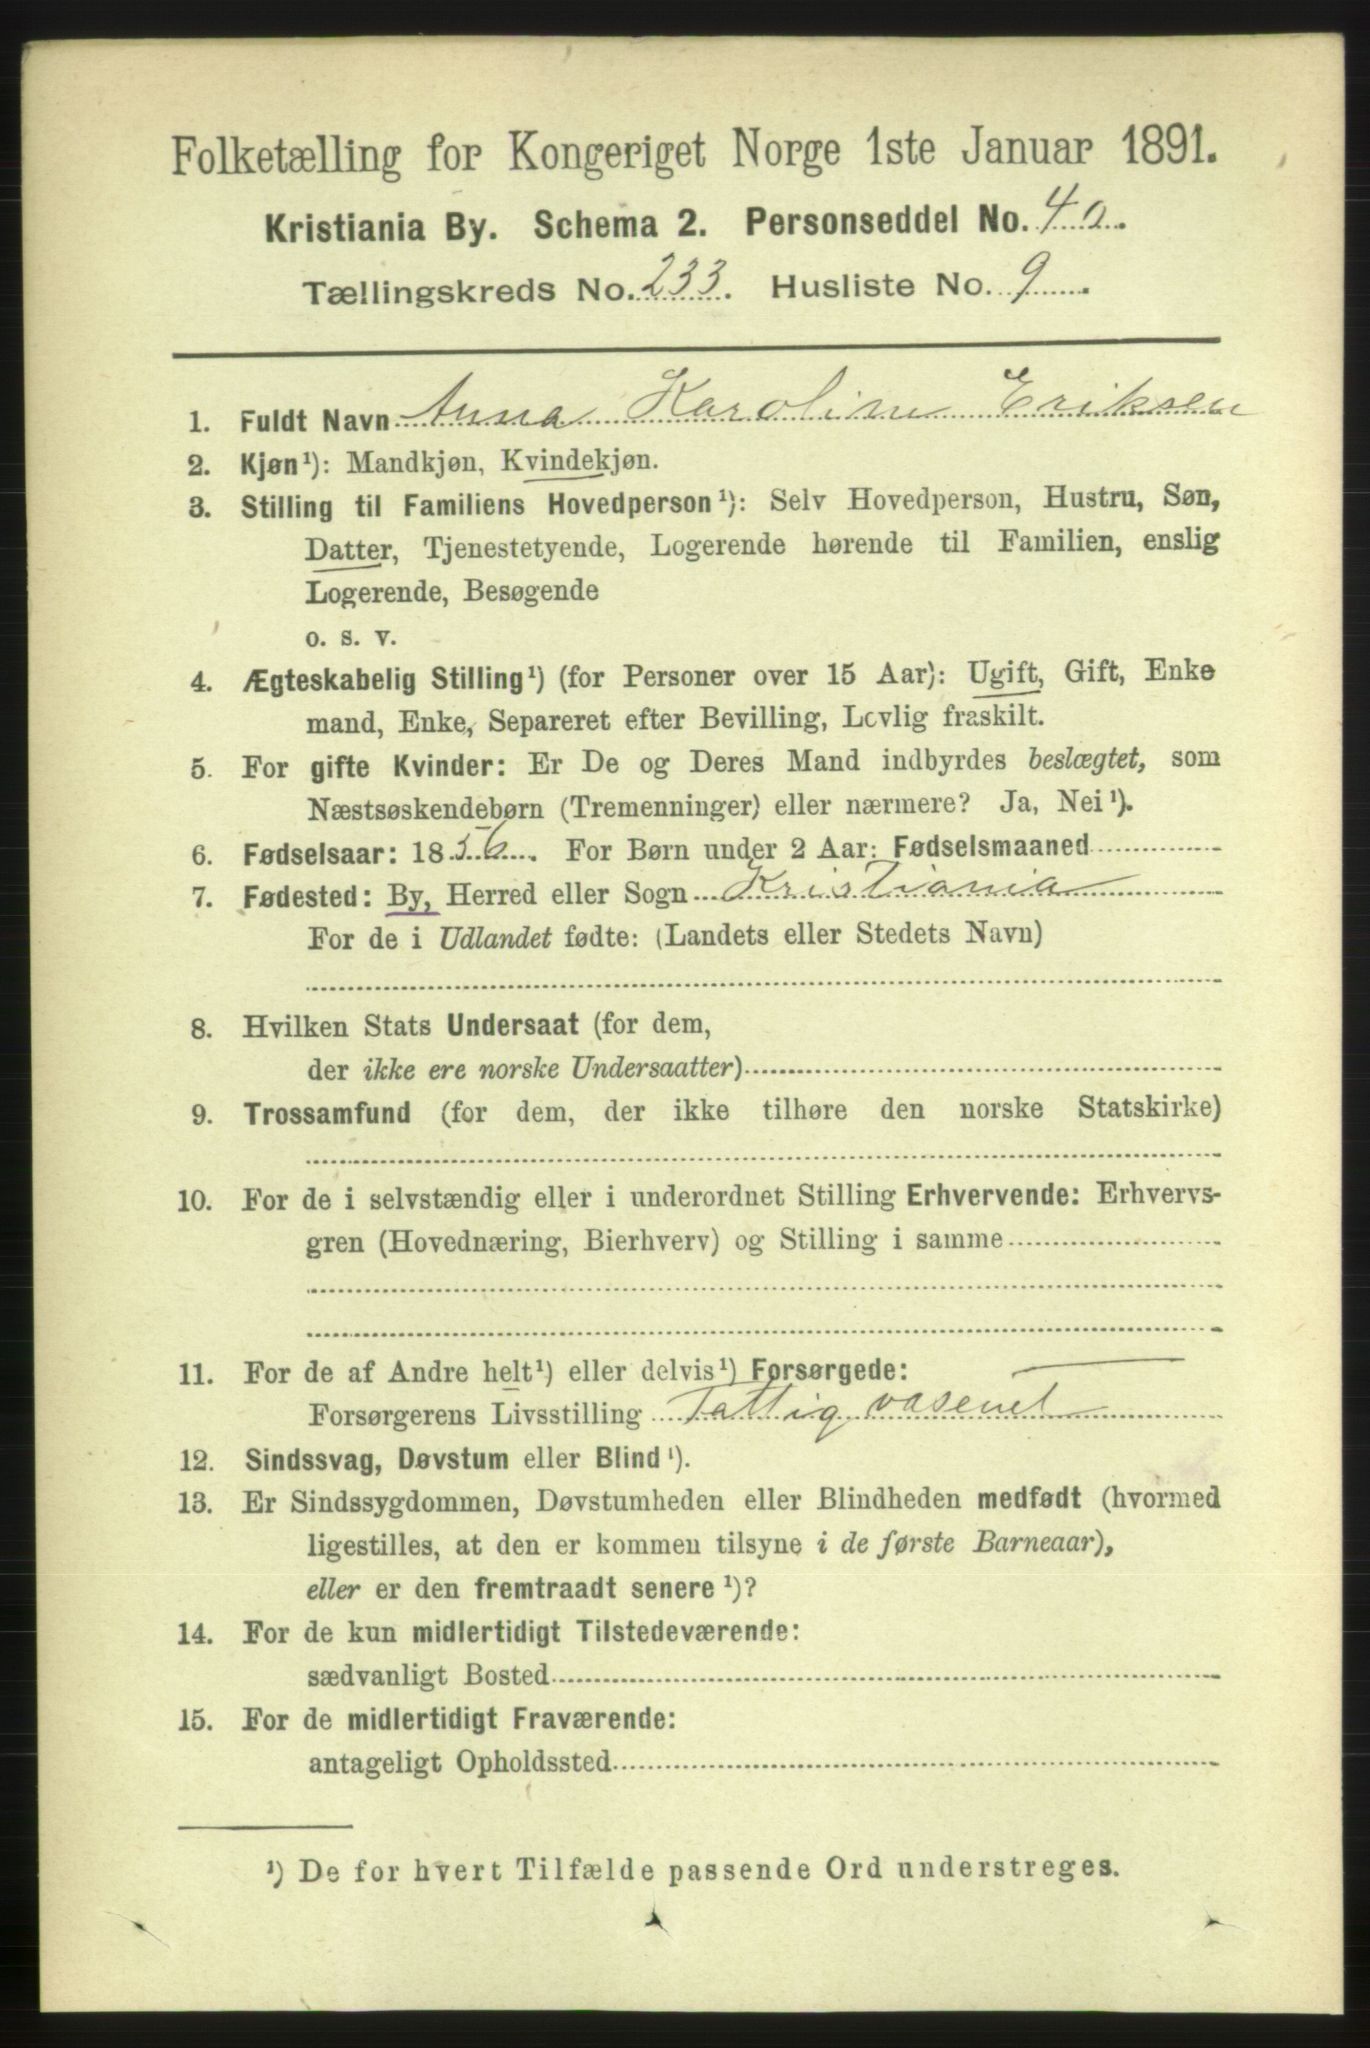 Folketælling for Kongeriget Norge 1ste Januar 1891.
Kristiania By. Schema 2. Personseddel No. 40.
Tællingskreds No. 233. Husliste No. 9
1. Fuldt Navn Anna Karoline Eriksen
2. Kjøn¹): Mandkjøn, Kvindekjøn.
3. Stilling til Familiens Hovedperson¹): Selv Hovedperson, Hustru, Søn,
Datter, Tjenestetyende, Logerende hørende til Familien, enslig
Logerende, Besøgende
o. s. v.
4. Ægteskabelig Stilling¹) (for Personer over 15 Aar): Ugift, Gift, Enke
mand, Enke, Separeret efter Bevilling, Lovlig fraskilt.
5. For gifte Kvinder: Er De og Deres Mand indbyrdes beslægtet, som
Næstsøskendebørn (Tremenninger) eller nærmere? Ja, Nei¹).
6. Fødselsaar: 1856. For Børn under 2 Aar: Fødselsmaaned
7. Fødested: By, Herred eller Sogn Kristiania
For de i Udlandet fødte: (Landets eller Stedets Navn)
8. Hvilken Stats Undersaat (for dem,
der ikke ere norske Undersaatter)
9. Trossamfund (for dem, der ikke tilhøre den norske Statskirke)
10. For de i selvstændig eller i underordnet Stilling Erhvervende: Erhvervs-
gren (Hovednæring, Bierhverv) og Stilling i samme
11. For de af Andre helt¹) eller delvis¹) Forsørgede:
Forsørgerens Livsstilling Fattigvæsenet
12. Sindssvag, Døvstum eller Blind¹).
13. Er Sindssygdommen, Døvstumheden eller Blindheden medfødt (hvormed
ligestilles, at den er kommen tilsyne i de første Barneaar),
eller er den fremtraadt senere¹)?
14. For de kun midlertidigt Tilstedeværende:
sædvanligt Bosted
15. For de midlertidigt Fraværende:
antageligt Opholdssted
¹) De for hvert Tilfælde passende Ord understreges.